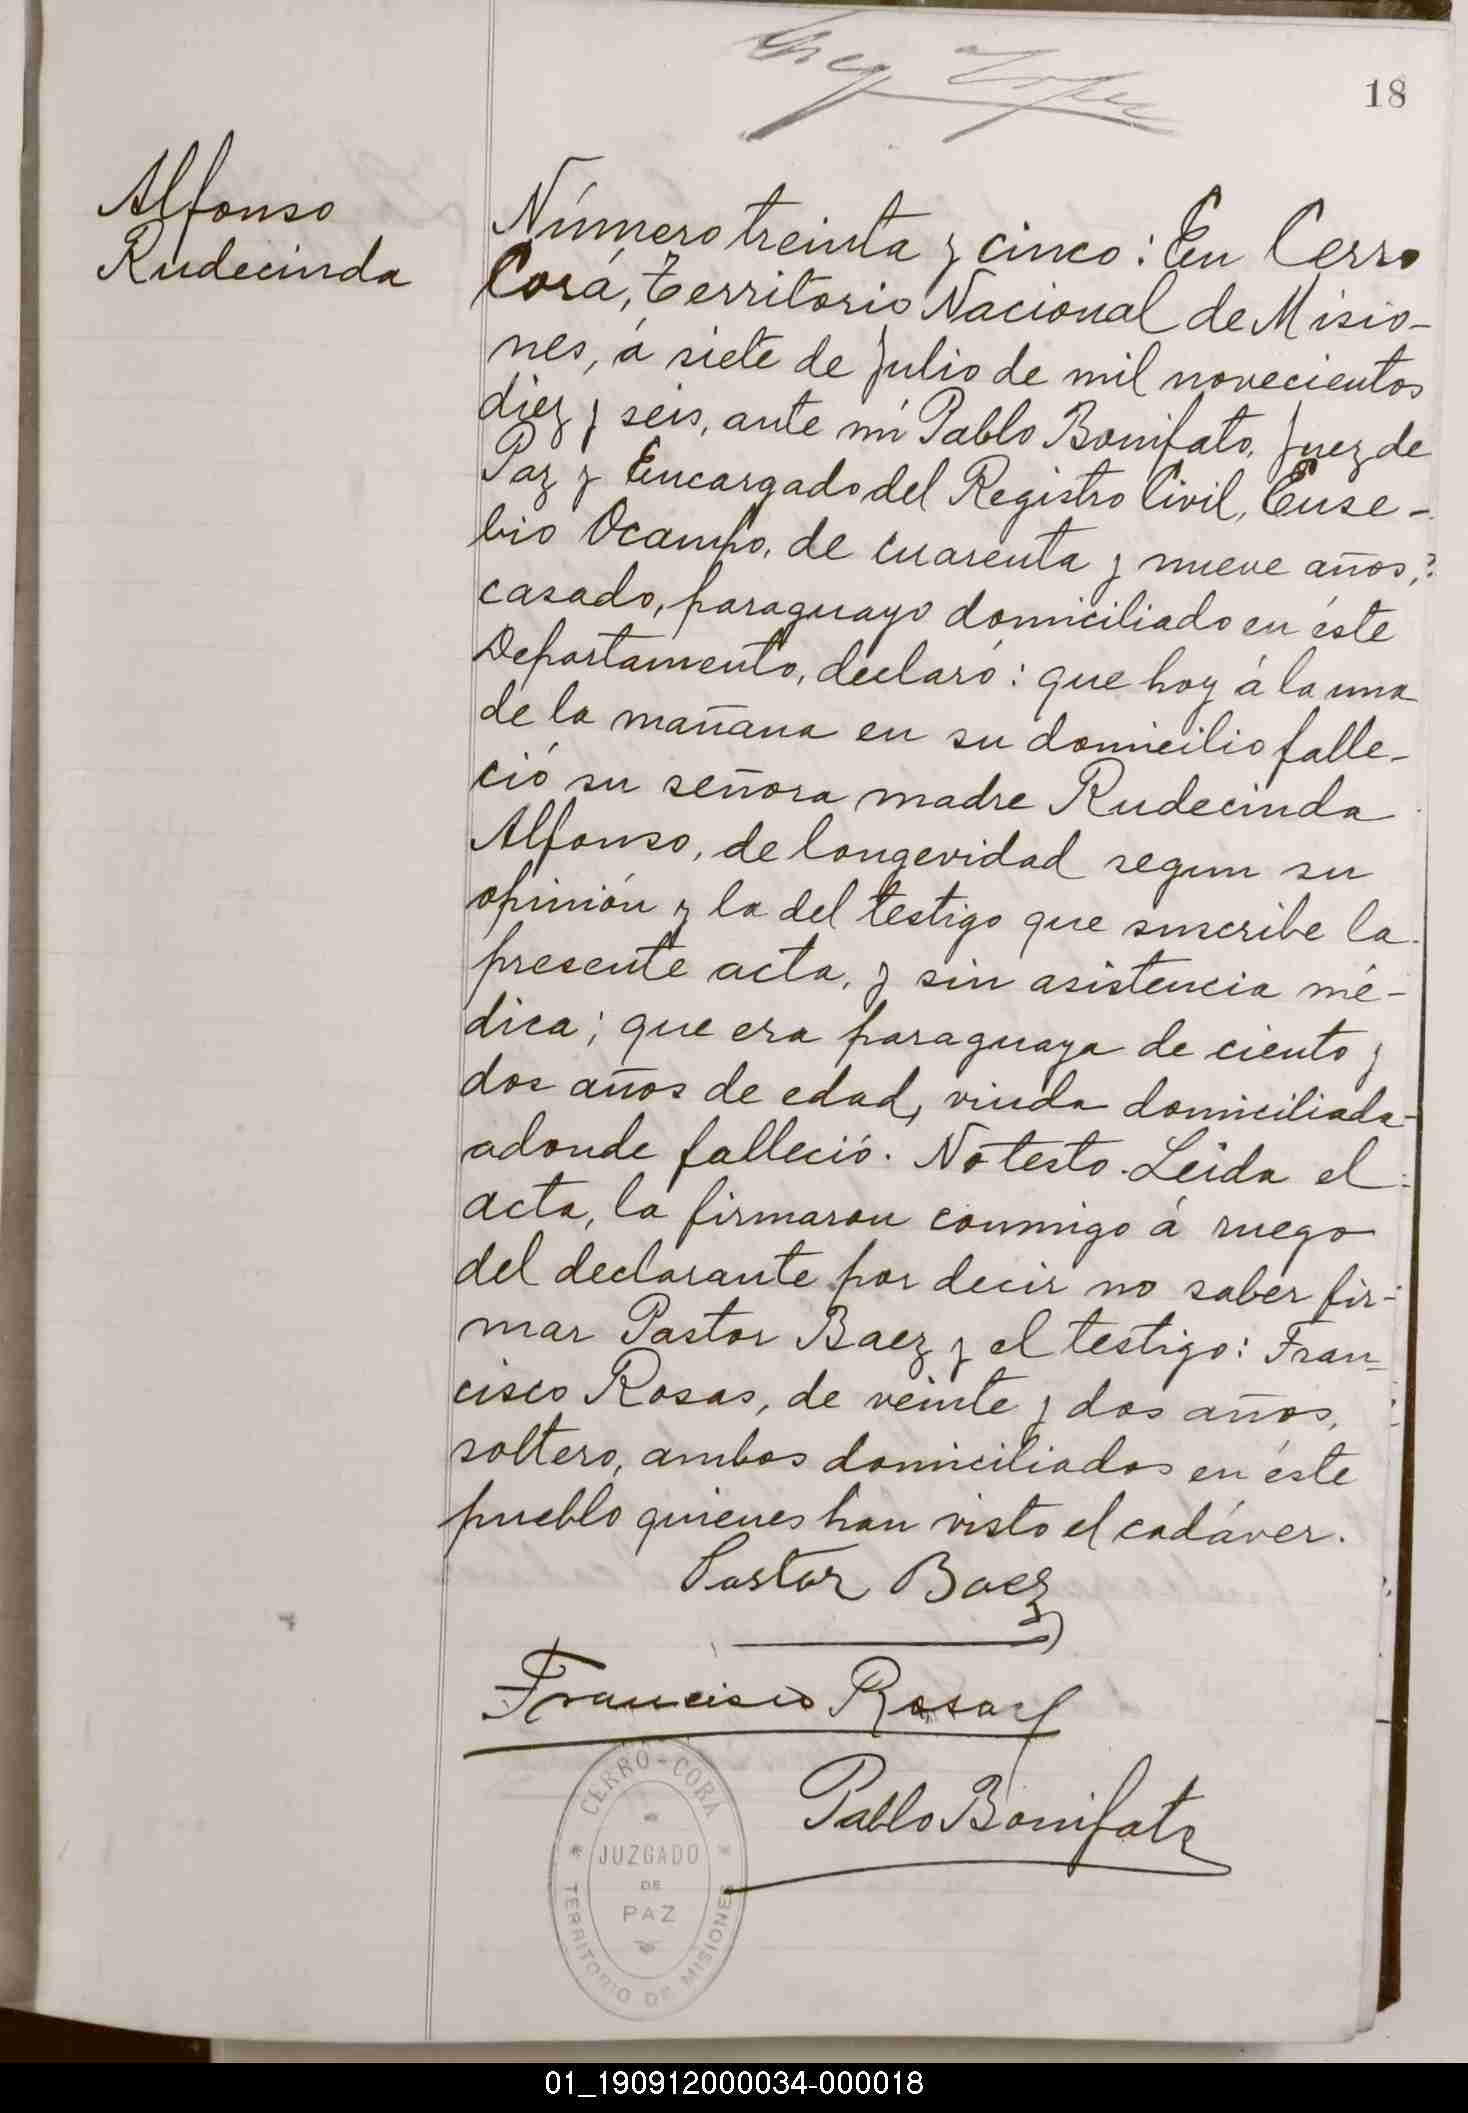 18
Alfonso
Rudecinda
Número treinta y cinco: En Cerro
Corá, Territorio Nacional de Misio-
nes, á siete de Julio de mil novecientos
diez y seis, ante mí Pablo Bonifato, Juez de
Paz y Encargado del Registro Civil, Euse-
bio Ocampo, de cuarenta y nueve años,
casado, paraguayo domiciliado en éste
Departamento, declaró: que hoy á la una
de la mañana en su domicilio falle-
ció su señora madre Rudecinda
Alfonso, de longevidad segun su
opinión y la del testigo que suscribe la
presente acta, y sin asistencia mé-
dica; que era paraguaya de ciento y
dos años de edad, viuda domiciliada
adonde falleció. No testo. Leida el
acta, la firmaron conmigo á ruego
del declarante por decir no saber fir-
mar Pastor Baez y el testigo: Fran-
cisco Rosas, de veinte y dos años,
soltero, ambos domiciliados en éste
pueblo quienes han visto el cadáver.
Pastor Baez
Francisco Rosas
Pablo Bonifato
CERRO-CORA
JUZGADO
DE
PAZ
TERRITORIO DE MISIONES
01_190912000034-000018